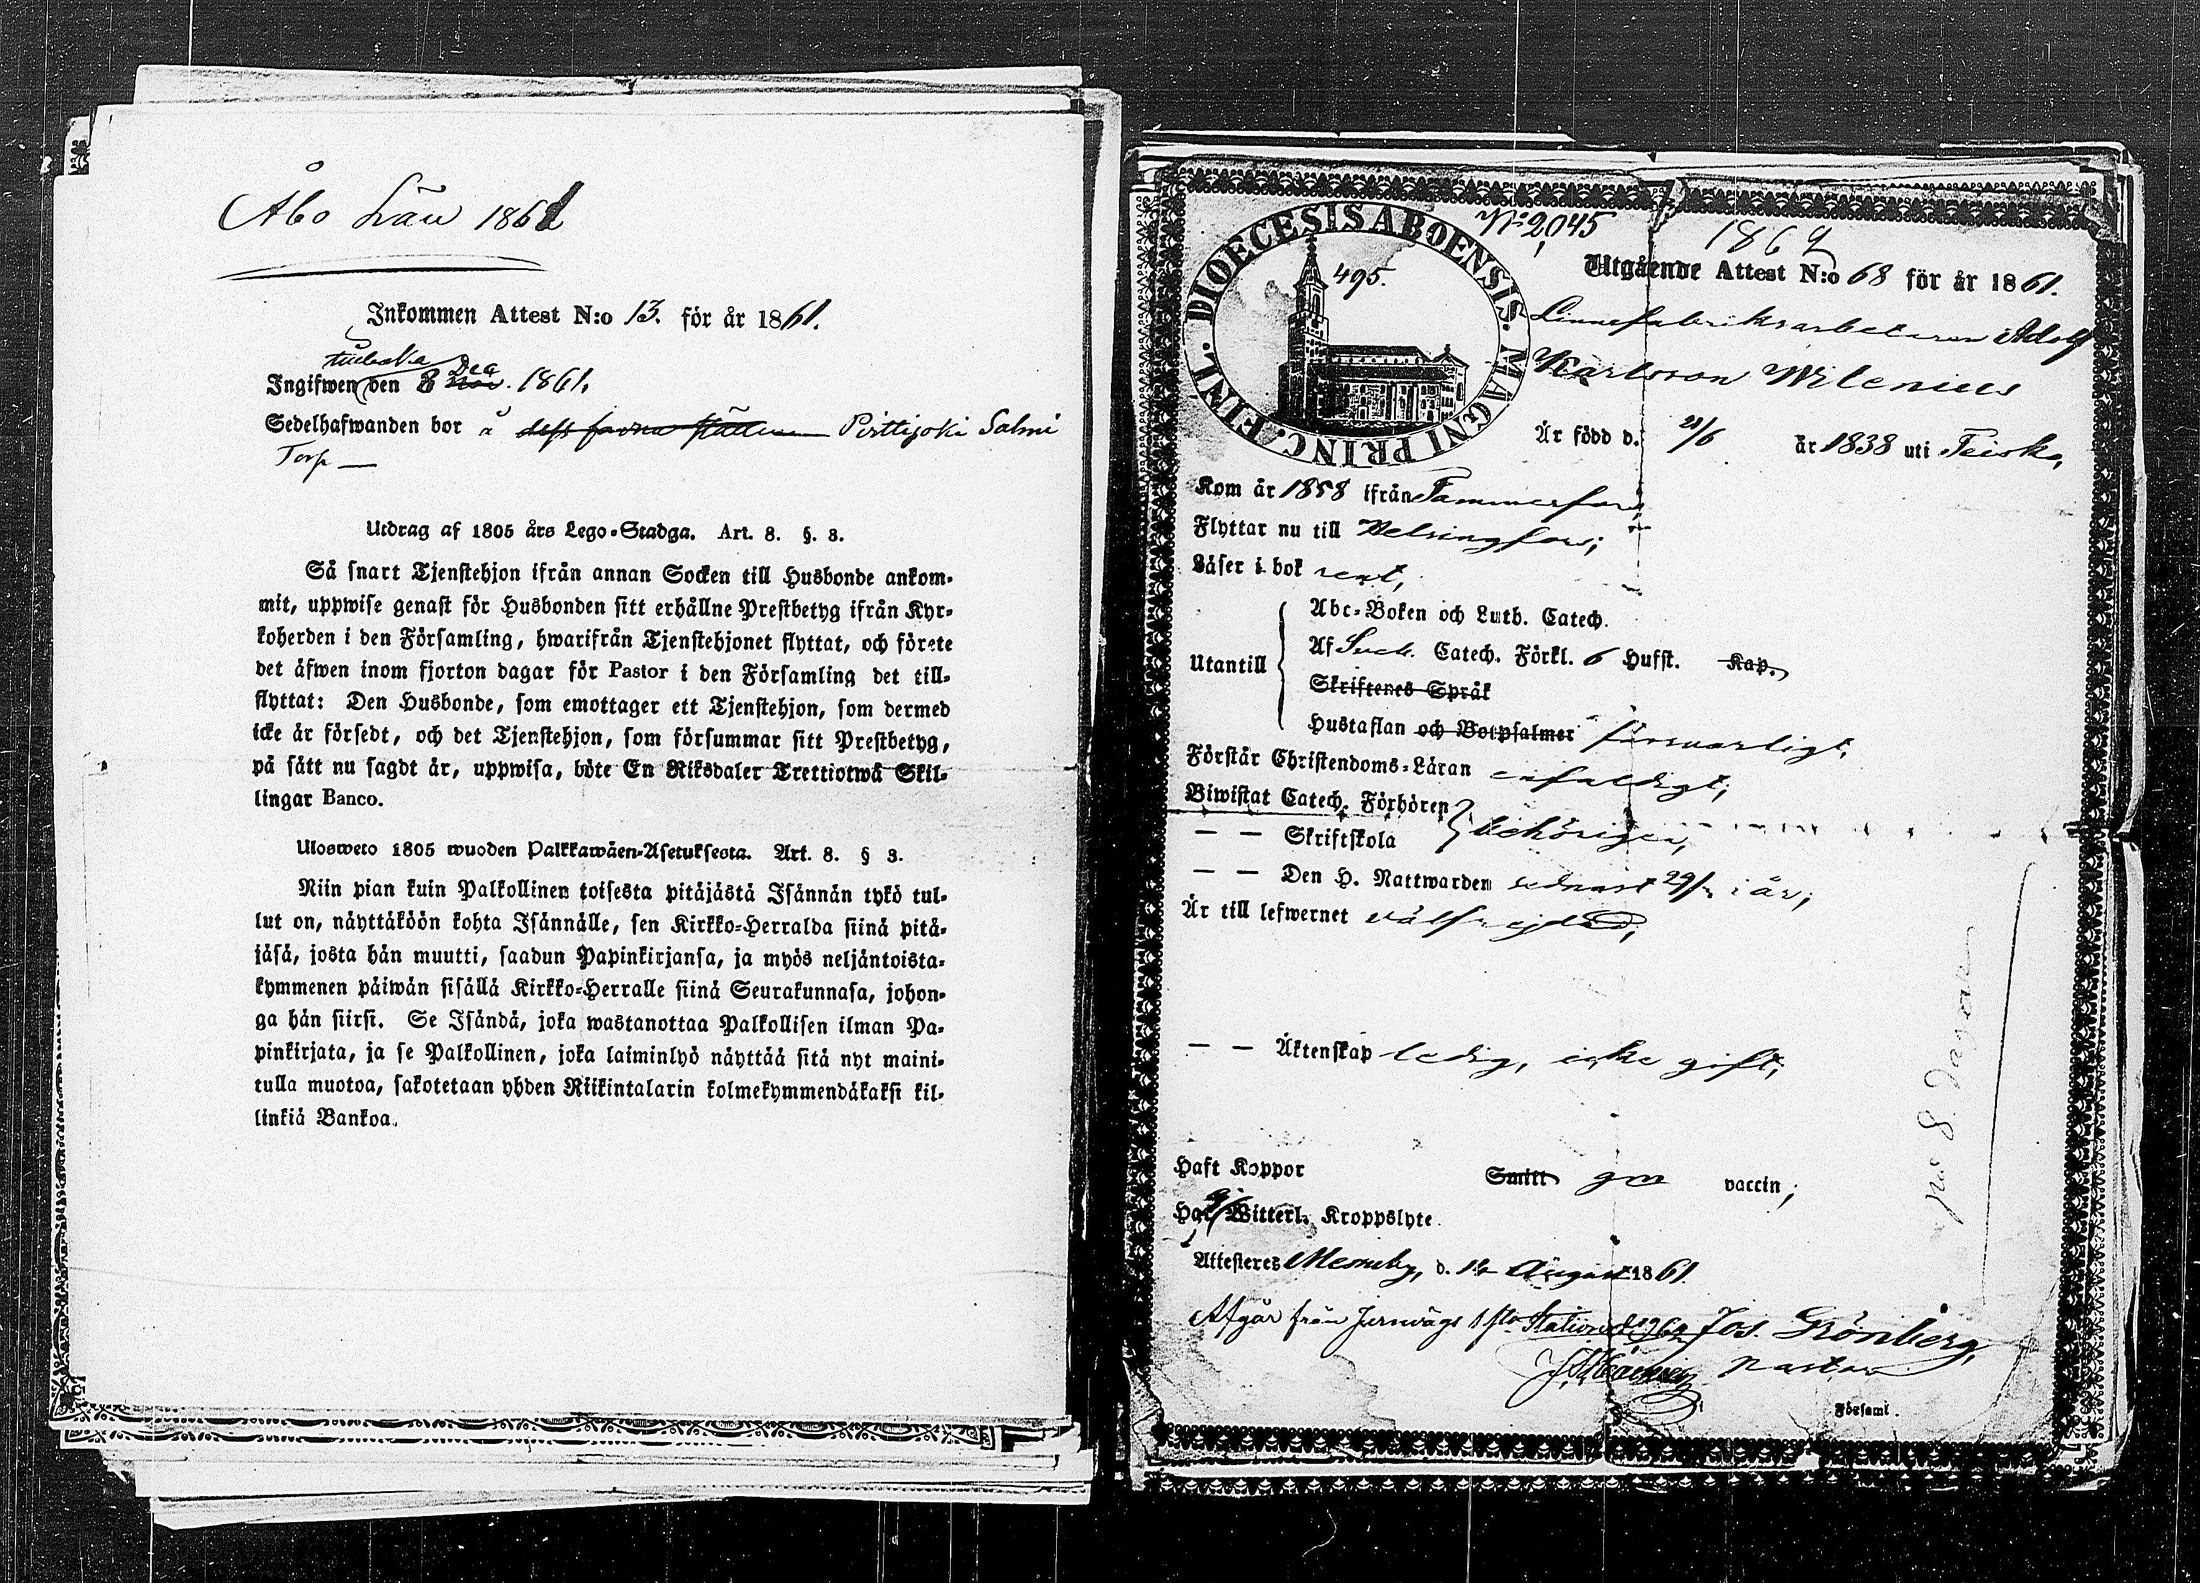 Åbo Län 1861
Inkommen Attest N:o 13. för år 1861.
tillbaka
Ingifwen den 8 Nov. Dec 1861.
Sedelhafwanden bor å dess förra ställe Pirttijoki Salmi
Torp —
Utdrag af 1805 års Lego-Stadga. Art. 8. §. 3.
Så snart Tjenstehjon ifrån annan Socken till Husbonde ankom-
mit, uppwise genast för Husbonden sitt erhållne Prestbetyg ifrån Kyr-
koherden i den Församling, hwarifrån Tjenstehjonet flyttat, och förete
det äfwen inom fjorton dagar för Pastor i den Församling det till-
flyttat: Den Husbonde, som emottager ett Tjenstehjon, som dermed
icke är försedt, och det Tjenstehjon, som försummar sitt Prestbetyg,
på sätt nu sagdt är, uppwisa, böte En Riksdaler Trettiotwå Skil-
lingar Banco.
Ulosweto 1805 wuoden Palkkawäen-Asetuksesta. Art. 8. § 3.
Niin pian kuin Palkollinen toisesta pitäjästä Isännän tykö tul-
lut on, näyttäköön kohta Isännälle, sen Kirkko-Herralda siinä pitä-
jäsä, josta hän muutti, saadun Papinkirjansa, ja myös neljäntoista-
kymmenen päiwän sisällä Kirkko-Herralle siinä Seurakunnasa, johon-
ga hän siirsi. Se Isändä, joka wastanottaa Palkollisen ilman Pa-
pinkirjata, ja se Palkollinen, joka laiminlyö näyttää sitä nyt maini-
tulla muotoa, sakotetaan yhden Riikintalarin kolmekymmendäkaksi kil-
linkiä Bankoa.
DIOECESIS ABOENSIS. MAGNI PRINC. FINL.
N:o 2,045
495.
1862
Utgående Attest N:o 68 för år 1861.
Linnefabriksarbetaren Adolf
Karlsson Wilenius
Är född d. 21/6 år 1838 uti Teisko,
Kom år 1858 ifrån Tammerfors,
Flyttar nu till Helsingfors;
Läser i bok rent,
Utantill
Abc-Boken och Luth. Catech.
Af Sveb. Catech. Förkl. 6 Hufst. Kap.
Skriftenes Språk
Hustaflan och Botpsalmer försvarligt,
Förstår Christendoms-Läran enfaldigt,
Biwistat Catech. Förhören
— — Skriftskola behörigen,
— — Den H. Nattwarden sednast i år;
Är till lefwernet välfrejdad,
— — Äktenskap ledig, icke gift;
Haft Koppor Smitt gm vaccin;
Har ej Witterl. Kroppslyte.
Attesteres Messuby, d. 14 August 1861
Afgår från Jernvägs 1sta Station
Jos. Grönberg,
Pastor
Församl.
på 8 dagar